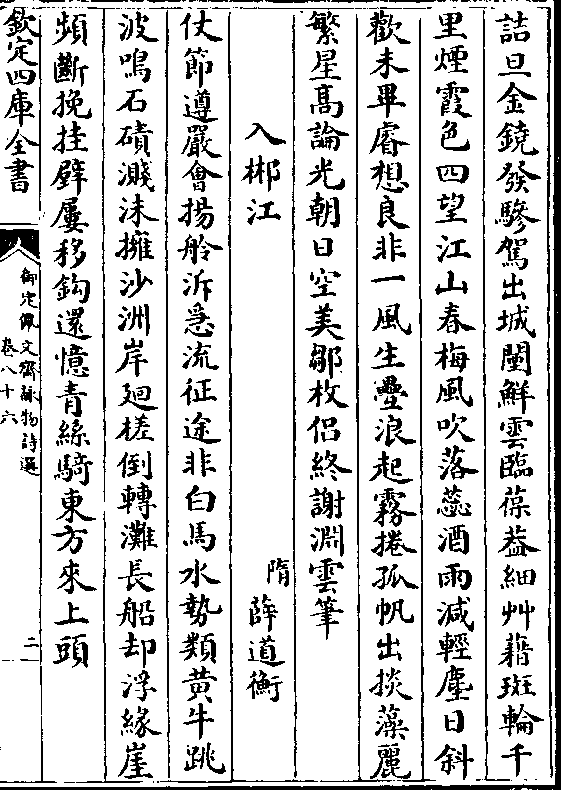 詰旦金鐃發驂駕出城闉鮮雲臨葆葢細艸藉斑輪千
里煙霞色四望江山春梅風吹落蕊酒雨減輕塵日斜
歡未畢睿想良非一風生疊浪起霧捲孤帆出掞藻麗
繁星髙論光朝日空美鄒枚侣終謝淵雲筆
入郴江
隋薛道衡
仗節遵嚴會揚舲泝急流征途非白馬水勢類黄牛跳
波鳴石磧濺沫擁沙洲岸廻槎倒轉灘長船却浮緣崖
頻斷挽挂壁屢移鈎還憶青絲騎東方來上頭
欽定四庫全書
御定佩文齋詠物詩選
卷八十六
二